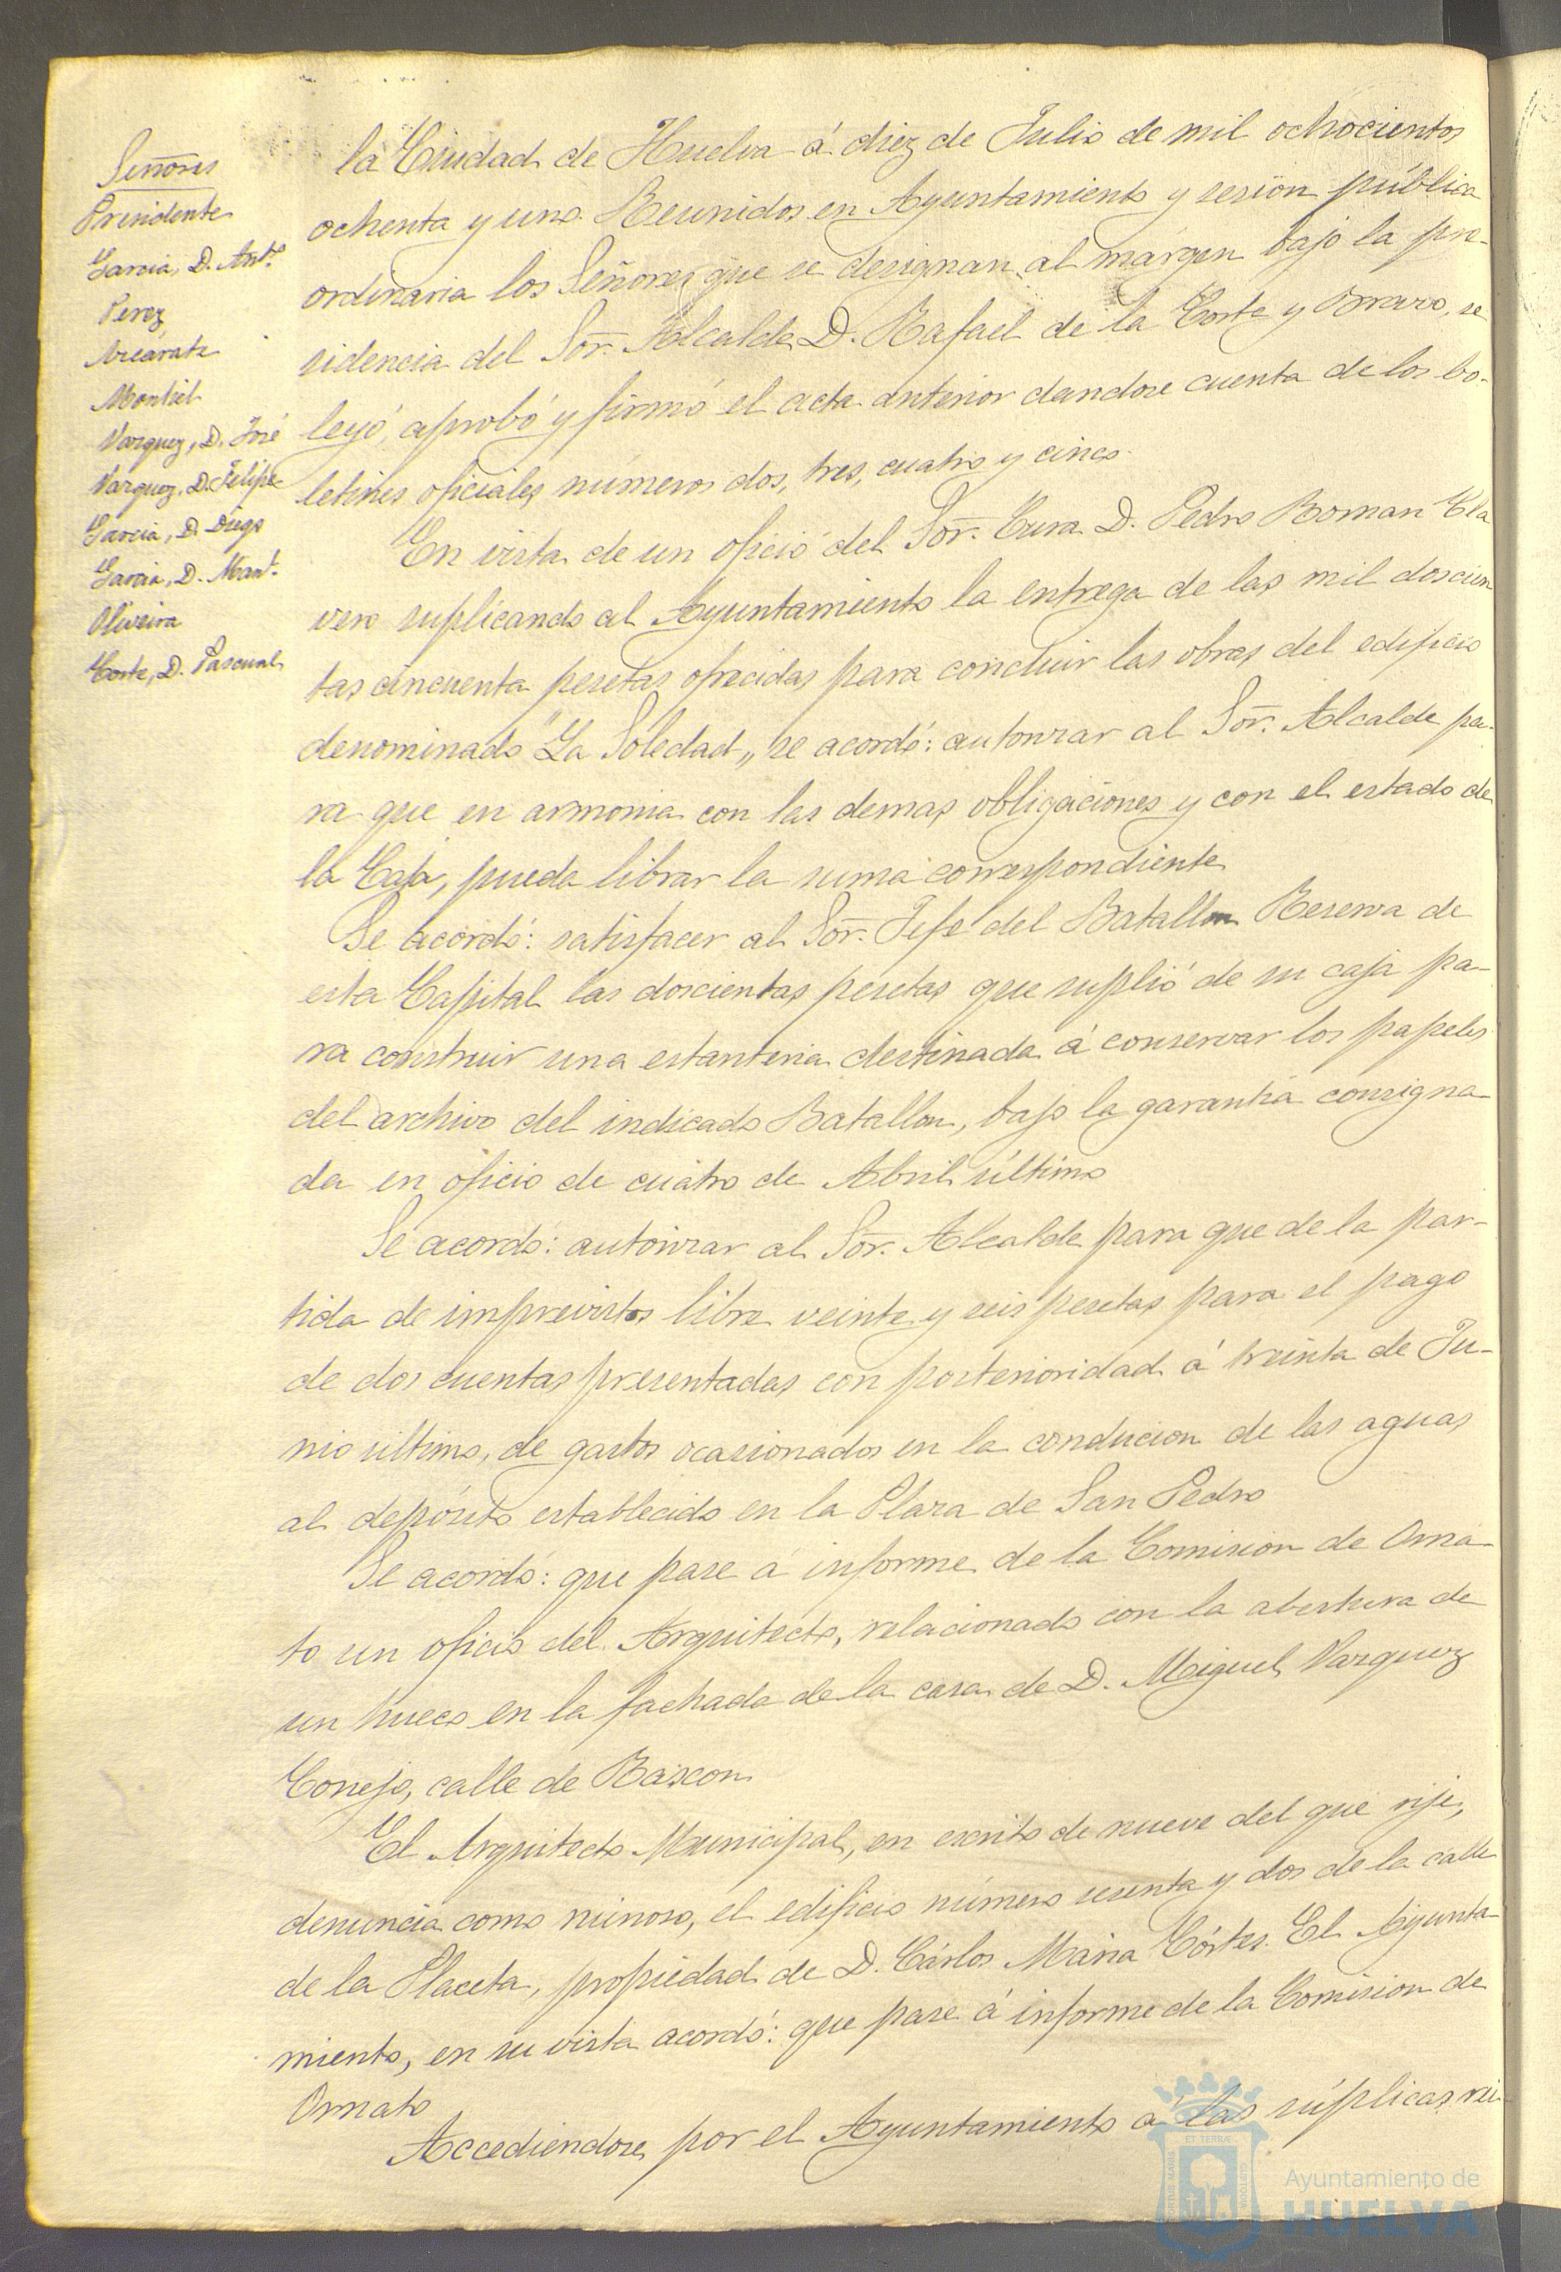 Señores
Presidente
Garcia, D. Antº
Perez
Azcárate
Montiel
Vazquez, D. José
Vazquez, D. Felipe
Garcia, D. Diego
Garcia, D. Manl.
Oliveira
Corte, D. Pascual
la Ciudad de Huelva á diez de Julio de mil ochocientos
ochenta y uno. Reunidos en Ayuntamiento y sesion pública
ordinaria los Señores que se designan al márgen bajo la pre-
sidencia del Sor. Alcalde D. Rafael de la Corte y Bravo, se
leyó, aprobó y firmó el acta anterior dandose cuenta de los bo-
letines oficiales números dos, tres, cuatro y cinco.
En vista de un oficio del Sor. Cura D. Pedro Roman Cla
vero suplicando al Ayuntamiento la entrega de las mil doscien
tas cincuenta pesetas ofrecidas para concluir las obras del edificio
denominado "La Soledad„ se acordó: autorizar al Sor. Alcalde pa-
ra que en armonia con las demas obligaciones y con el estado de
la Caja, pueda librar la suma correspondiente
Se acordó: satisfacer al Sor. Jefe del Batallon Reserva de
esta Capital las doscientas pesetas que suplió de su caja pa-
ra construir una estanteria destinada á conservar los papeles
del archivo del indicado Batallon, bajo la garantia consigna-
da en oficio de cuatro de Abril último
Se acordó: autorizar al Sor. Alcalde para que de la par-
tida de imprevistos libre veinte y seis pesetas para el pago
de dos cuentas presentadas con posterioridad á treinta de Ju-
nio ultimo, de gastos ocasionados en la conducion de las aguas
al depósito establecido en la Plaza de San Pedro
Se acordó: que pase á informe de la Comision de Orna-
to un oficio del Arquitecto, relacionado con la abertura de
un hueco en la fachada de la casa de D. Miguel Vazquez
Conejo, calle de Rascon
El Arquitecto Municipal, en escrito de nueve del que rije,
denuncia como ruinoso, el edificio número sesenta y dos de la calle
de la Placeta, propiedad de D. Cárlos Maria Córtes. El Ayunta-
miento, en su vista acordó: que pase á informe de la Comision de
Ornato
Accediendose por el Ayuntamiento a las súplicas
Ayuntamiento de
HUELVA